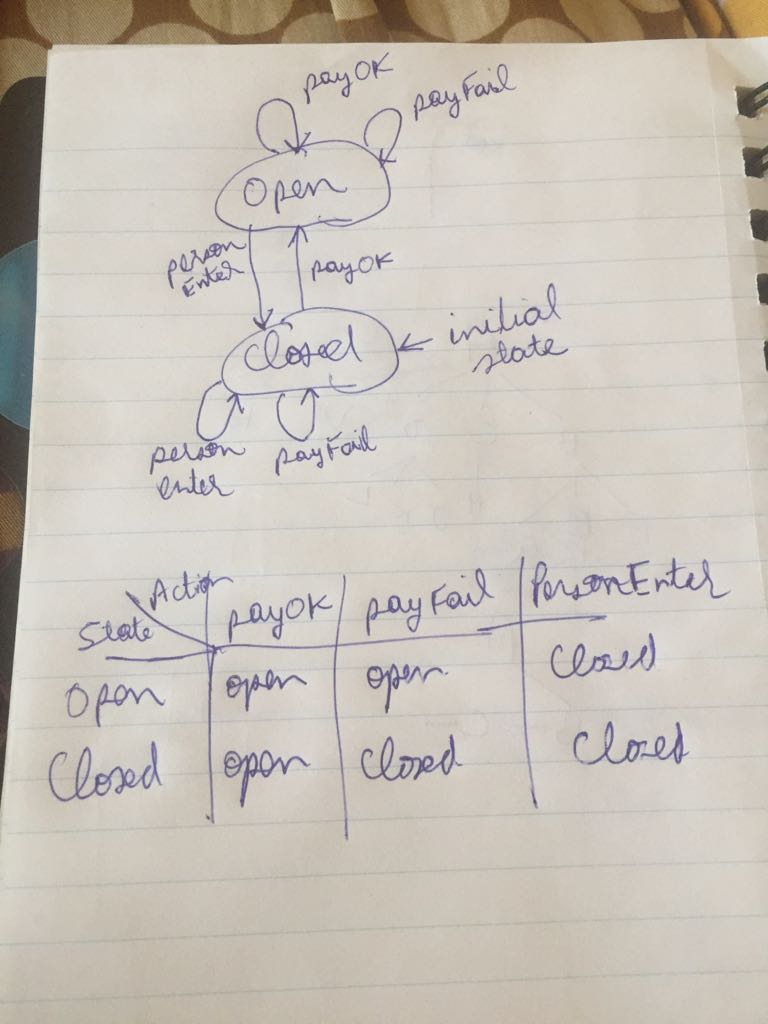 payOK
payFail
Open
person
Enter
payOK
Closed
initial
state
person
enter
payFail
Action
State
payOK payFail PersonEnter
Open open open Closed
Closed open Closed Closed